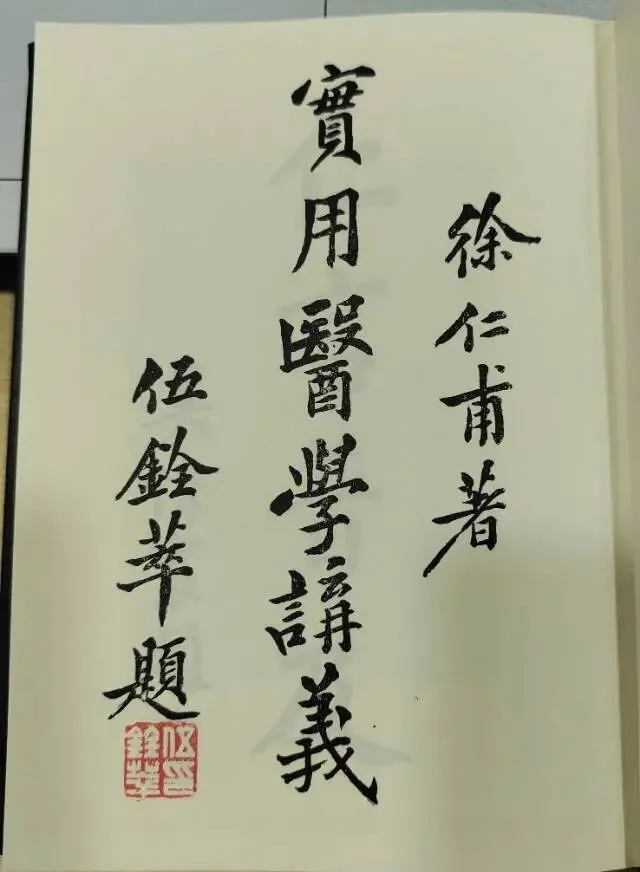 徐仁甫著
實用醫學講義
伍銓萃題
伍銓萃印